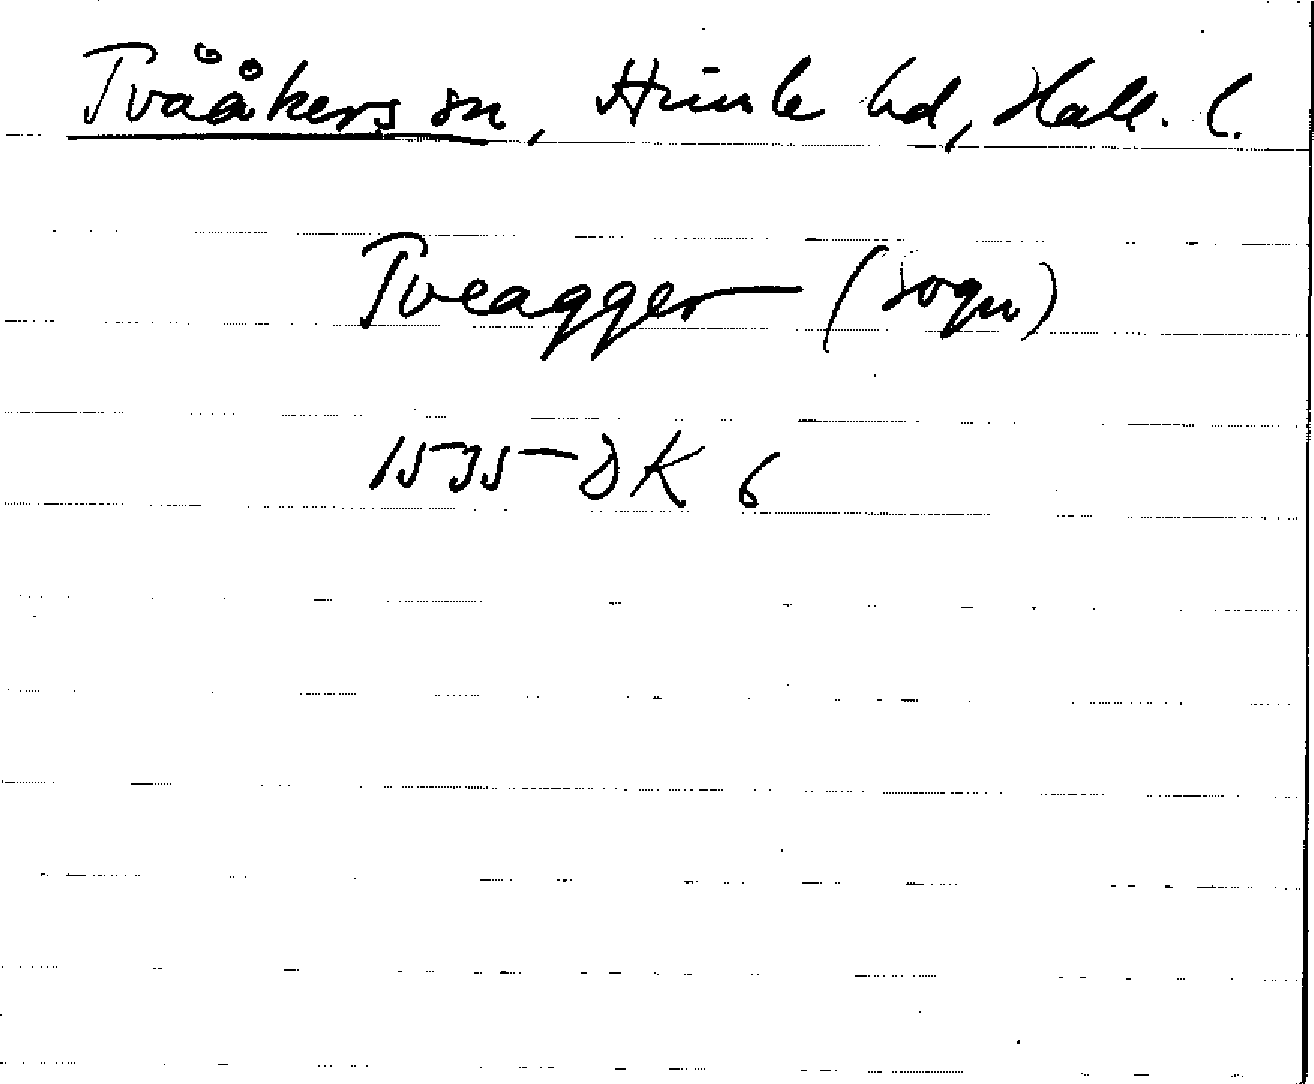 Tvååkers sn, Himle hd, Hall. l.
Tveagger (sogn)
1535 DK 6